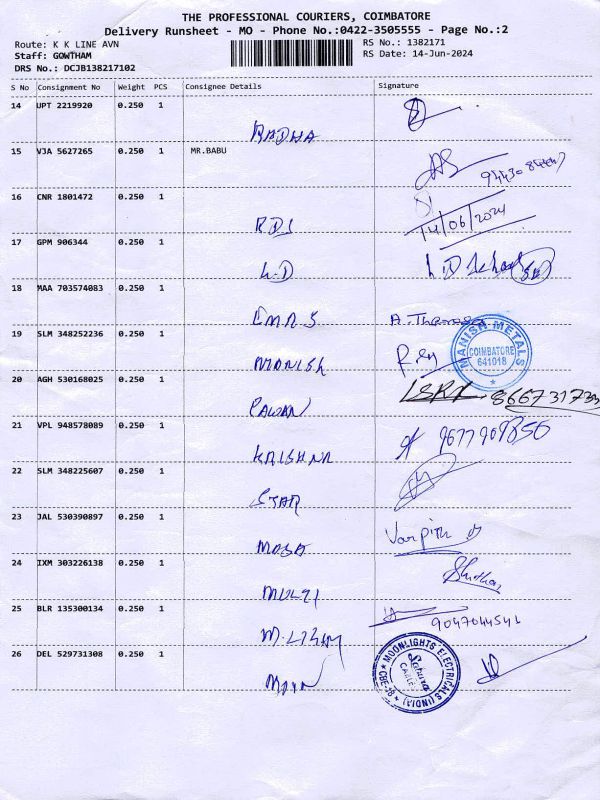 THE PROFESSIONAL COURIERS, COIMBATORE
Delivery Runsheet - MO - Phone No.:0422-3505555 - Page No.:2
Route: K K LINE AVN
RS No.: 1382171
Staff: GOWTHAM
RS Date: 14-Jun-2024
DRS No.: DCJB138217102
S No Consignment No Weight PCS Consignee Details Signature
14 UPT 2219920 0.250 1
RADHA
15 VJA 5627265 0.250 1 MR.BABU
16 CNR 1801472 0.250 1
14/06/2024
RDS
17 GPM 906344 0.250 1
L.D L.D School
18 MAA 703574083 0.250 1
EMRS A.
19 SLM 348252236 0.250 1
MANISH METALS
COIMBATORE
641018
MANISH
20 AGH 530168025 0.250 1
PAWAN
21 VPL 948578089 0.250 1
9677909850
KRISHNA
22 SLM 348225607 0.250 1
STAR
23 JAL 530390897 0.250 1
24 IXM 303226138 0.250 1
25 BLR 135300134 0.250 1
9047044541
26 DEL 529731308 0.250 1
MOONLIGHTS ELECTRICALS (INDIA)
CBE-18
MOON